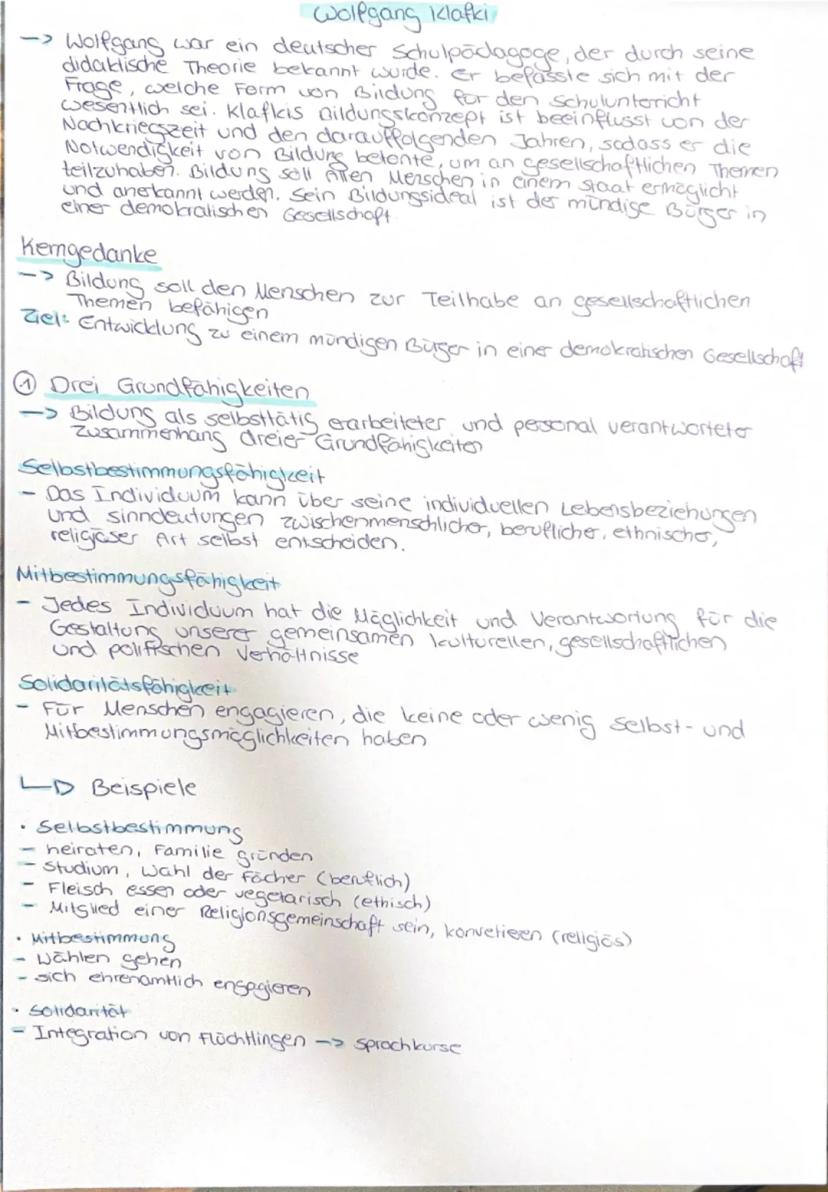 Wolfgang Klafki
-> Wolfgang war ein deutscher Schulpädagoge, der durch seine
didaktische Theorie bekannt wurde. Er befasste sich mit der
Frage, welche Form von Bildung für den Schulunterricht
wesentlich sei. Klafkis Bildungskonzept ist beeinflusst von der
Nachkriegszeit und den darauffolgenden Jahren, sodass er die
Notwendigkeit von Bildung betonte, um an gesellschaftlichen Themen
teilzuhaben. Bildung soll Allen Menschen in einem Staat ermöglicht
und anerkannt werden. Sein Bildungsideal ist der mündige Bürger in
einer demokratischen Gesellschaft
Kerngedanke
-> Bildung soll den Menschen zur Teilhabe an gesellschaftlichen
Themen befähigen
Ziel: Entwicklung zu einem mündigen Bürger in einer demokratischen Gesellschaft
① Drei Grundfähigkeiten
-> Bildung als selbsttätig erarbeiteter und personal verantworteter
Zusammenhang dreier Grundfähigkeiten
Selbstbestimmungsfähigkeit
- Das Individuum kann über seine individuellen Lebensbeziehungen
und sinndeutungen zwischenmenschlicher, beruflicher, ethnischer,
religiöser Art selbst entscheiden.
Mitbestimmungsfähigkeit
- Jedes Individuum hat die Möglichkeit und Verantwortung für die
Gestaltung unserer gemeinsamen kulturellen, gesellschaftlichen
und politischen Verhältnisse
Solidaritätsfähigkeit
- Für Menschen engagieren, die keine oder wenig Selbst- und
Mitbestimmungsmöglichkeiten haben
↳ Beispiele
• Selbstbestimmung
- heiraten, Familie gründen
- Studium, Wahl der Fächer (beruflich)
- Fleisch essen oder vegetarisch (ethisch)
- Mitglied einer Religionsgemeinschaft sein, konvetieren (religiös)
• Mitbestimmung
- Wählen gehen
- sich ehrenamtlich engagieren
• Solidarität
- Integration von Flüchtlingen -> Sprachkurse